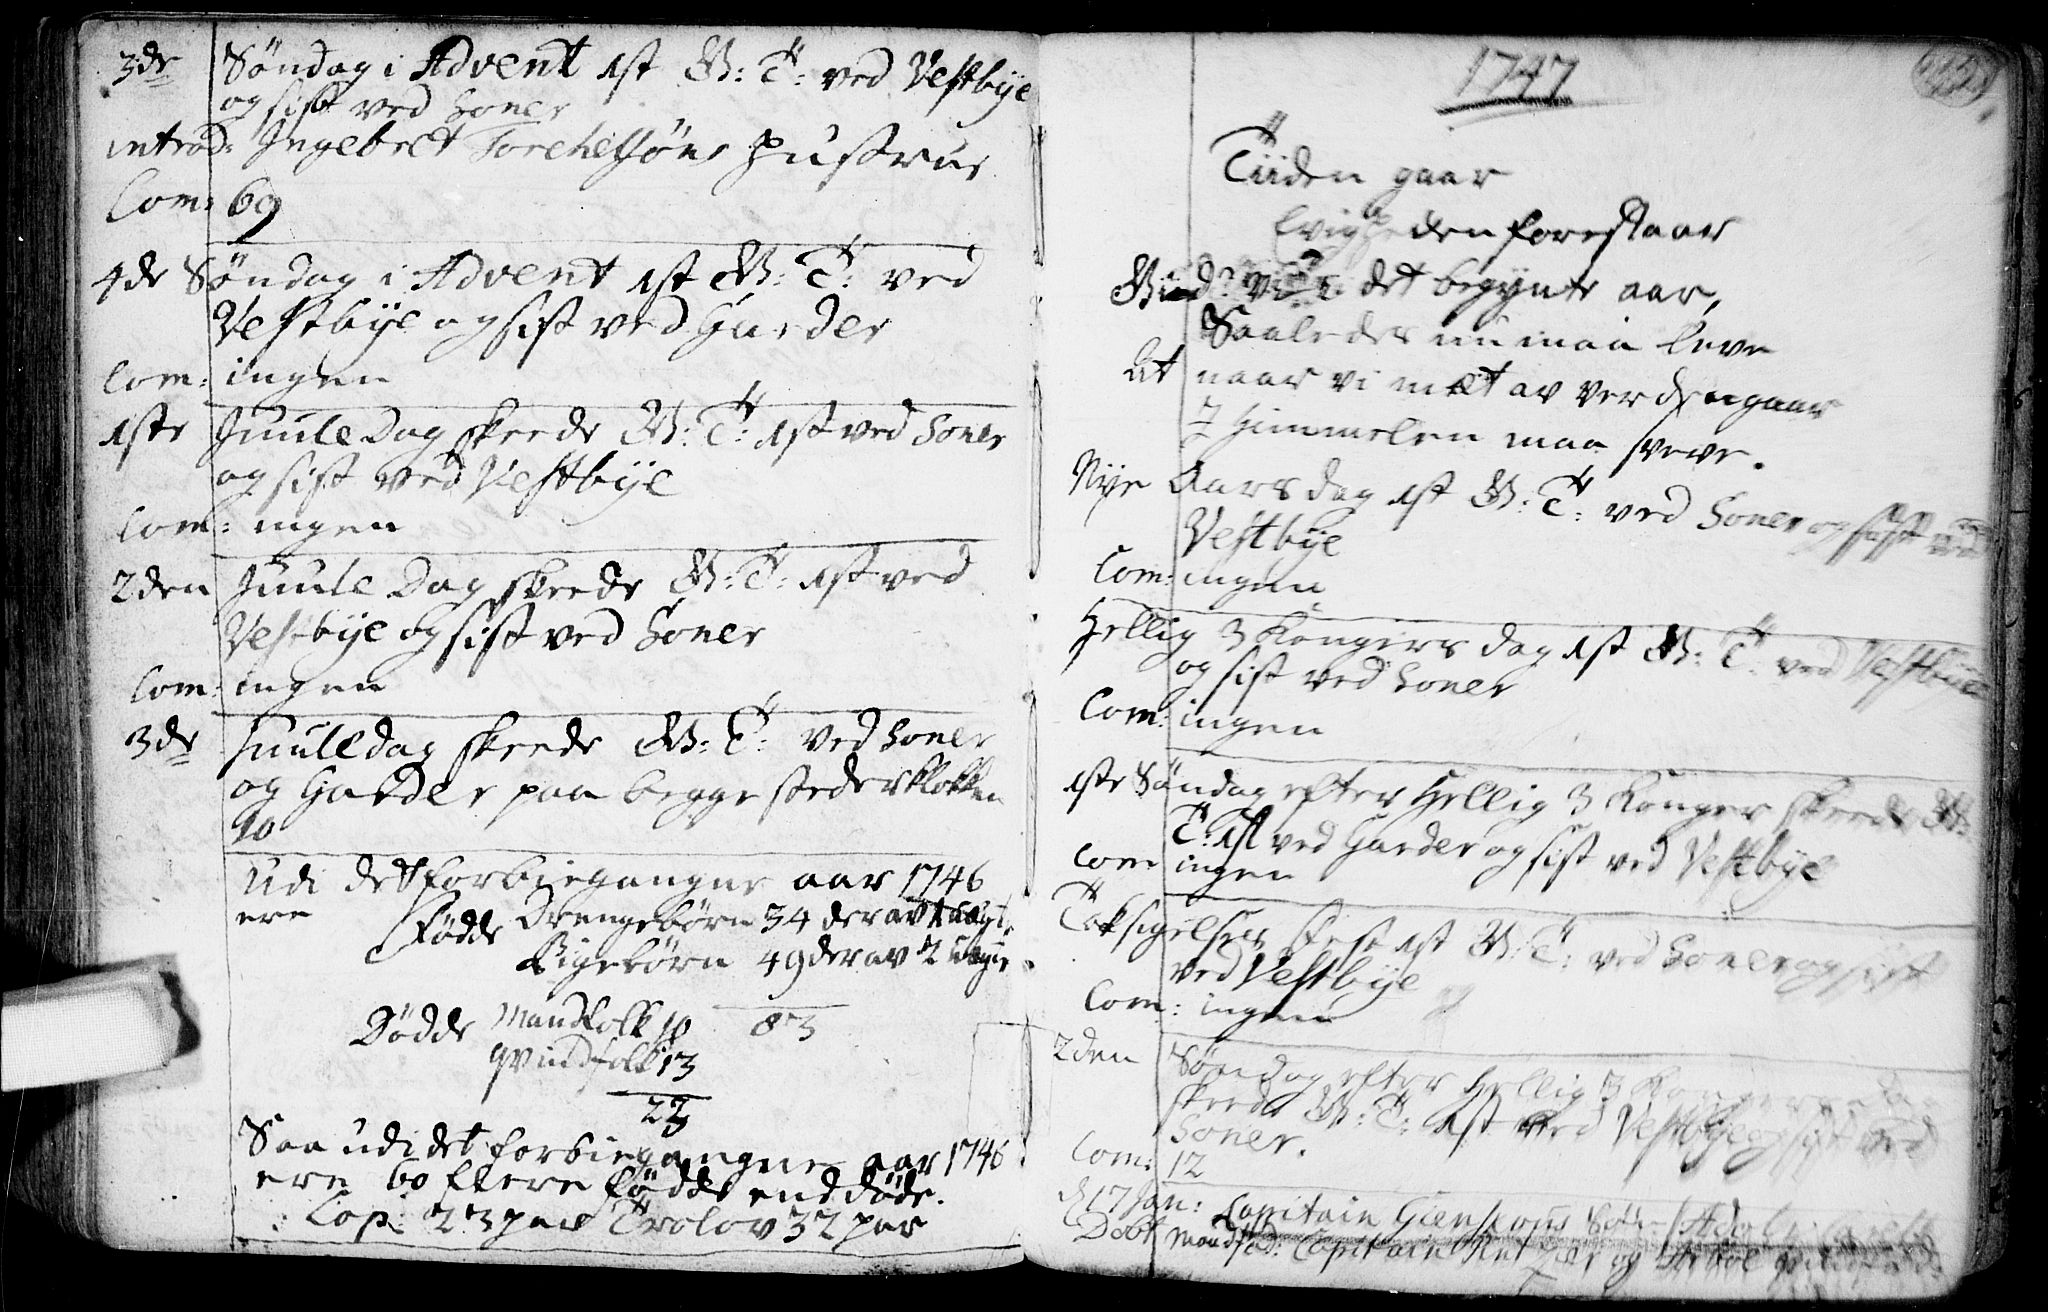 3de Søndag i Advent 1st G: T: ved Vestbye
og sist ved Soner
introd: Ingebret Torchelsøns Hustrue
Com: 69
4de Søndag i Advent 1st G: T: ved
Vestbye og sist ved Garder
Com: ingen
1ste Juule Dag skeede G: T: 1st ved Soner
og sist ved Vestbye
Com: ingen
2den Juule Dag skeede G: T: 1st ved
Vestbye og sist ved Soner
Com: ingen
3de Juule dag skeede G: T: ved Soner
og Garder paa begge steder klokken
10
Udi det forbiegangne aar 1746
ere Fødde Drengebørn 34 der av 1 uægte
Pigebørn 49 der av 2 uægte
83
Dødde Mandfolk 10
qvindfolk 13
23
Saa udi det forbiegangne aar 1746
ere 60 flere fødde end døde.
Cop: 23 par Trolov 32 par
1747
Tiiden gaar
Evigheden forestaar
Gud? vi i det begynte aar,
Saaledes nu maa leve
At naar vi mæt av verden gaar
I Himmelen maa sveve.
Nye Aars dag 1st G: T: ved Soner og sist ved
Vestbye
Com: ingen
Hellig 3 Kongers dag 1st G: T: ved Vestbye
og sist ved Soner
Com: ingen
1ste Søndag efter Hellig 3 Konger skeede G:
T: 1st ved Garder og sist ved Vestbye
Com ingen
Taksigelses fest 1st G: T: ved Soner og sist
ved Vestbye
Com: ingen
2den Søndag efter Hellig 3 Kongers
skeede G: T: 1st ved Vestbye og sist ved
Soner.
Com: 12
d 17 Jan: Capitain
Døbt Mandfad: Capitain og